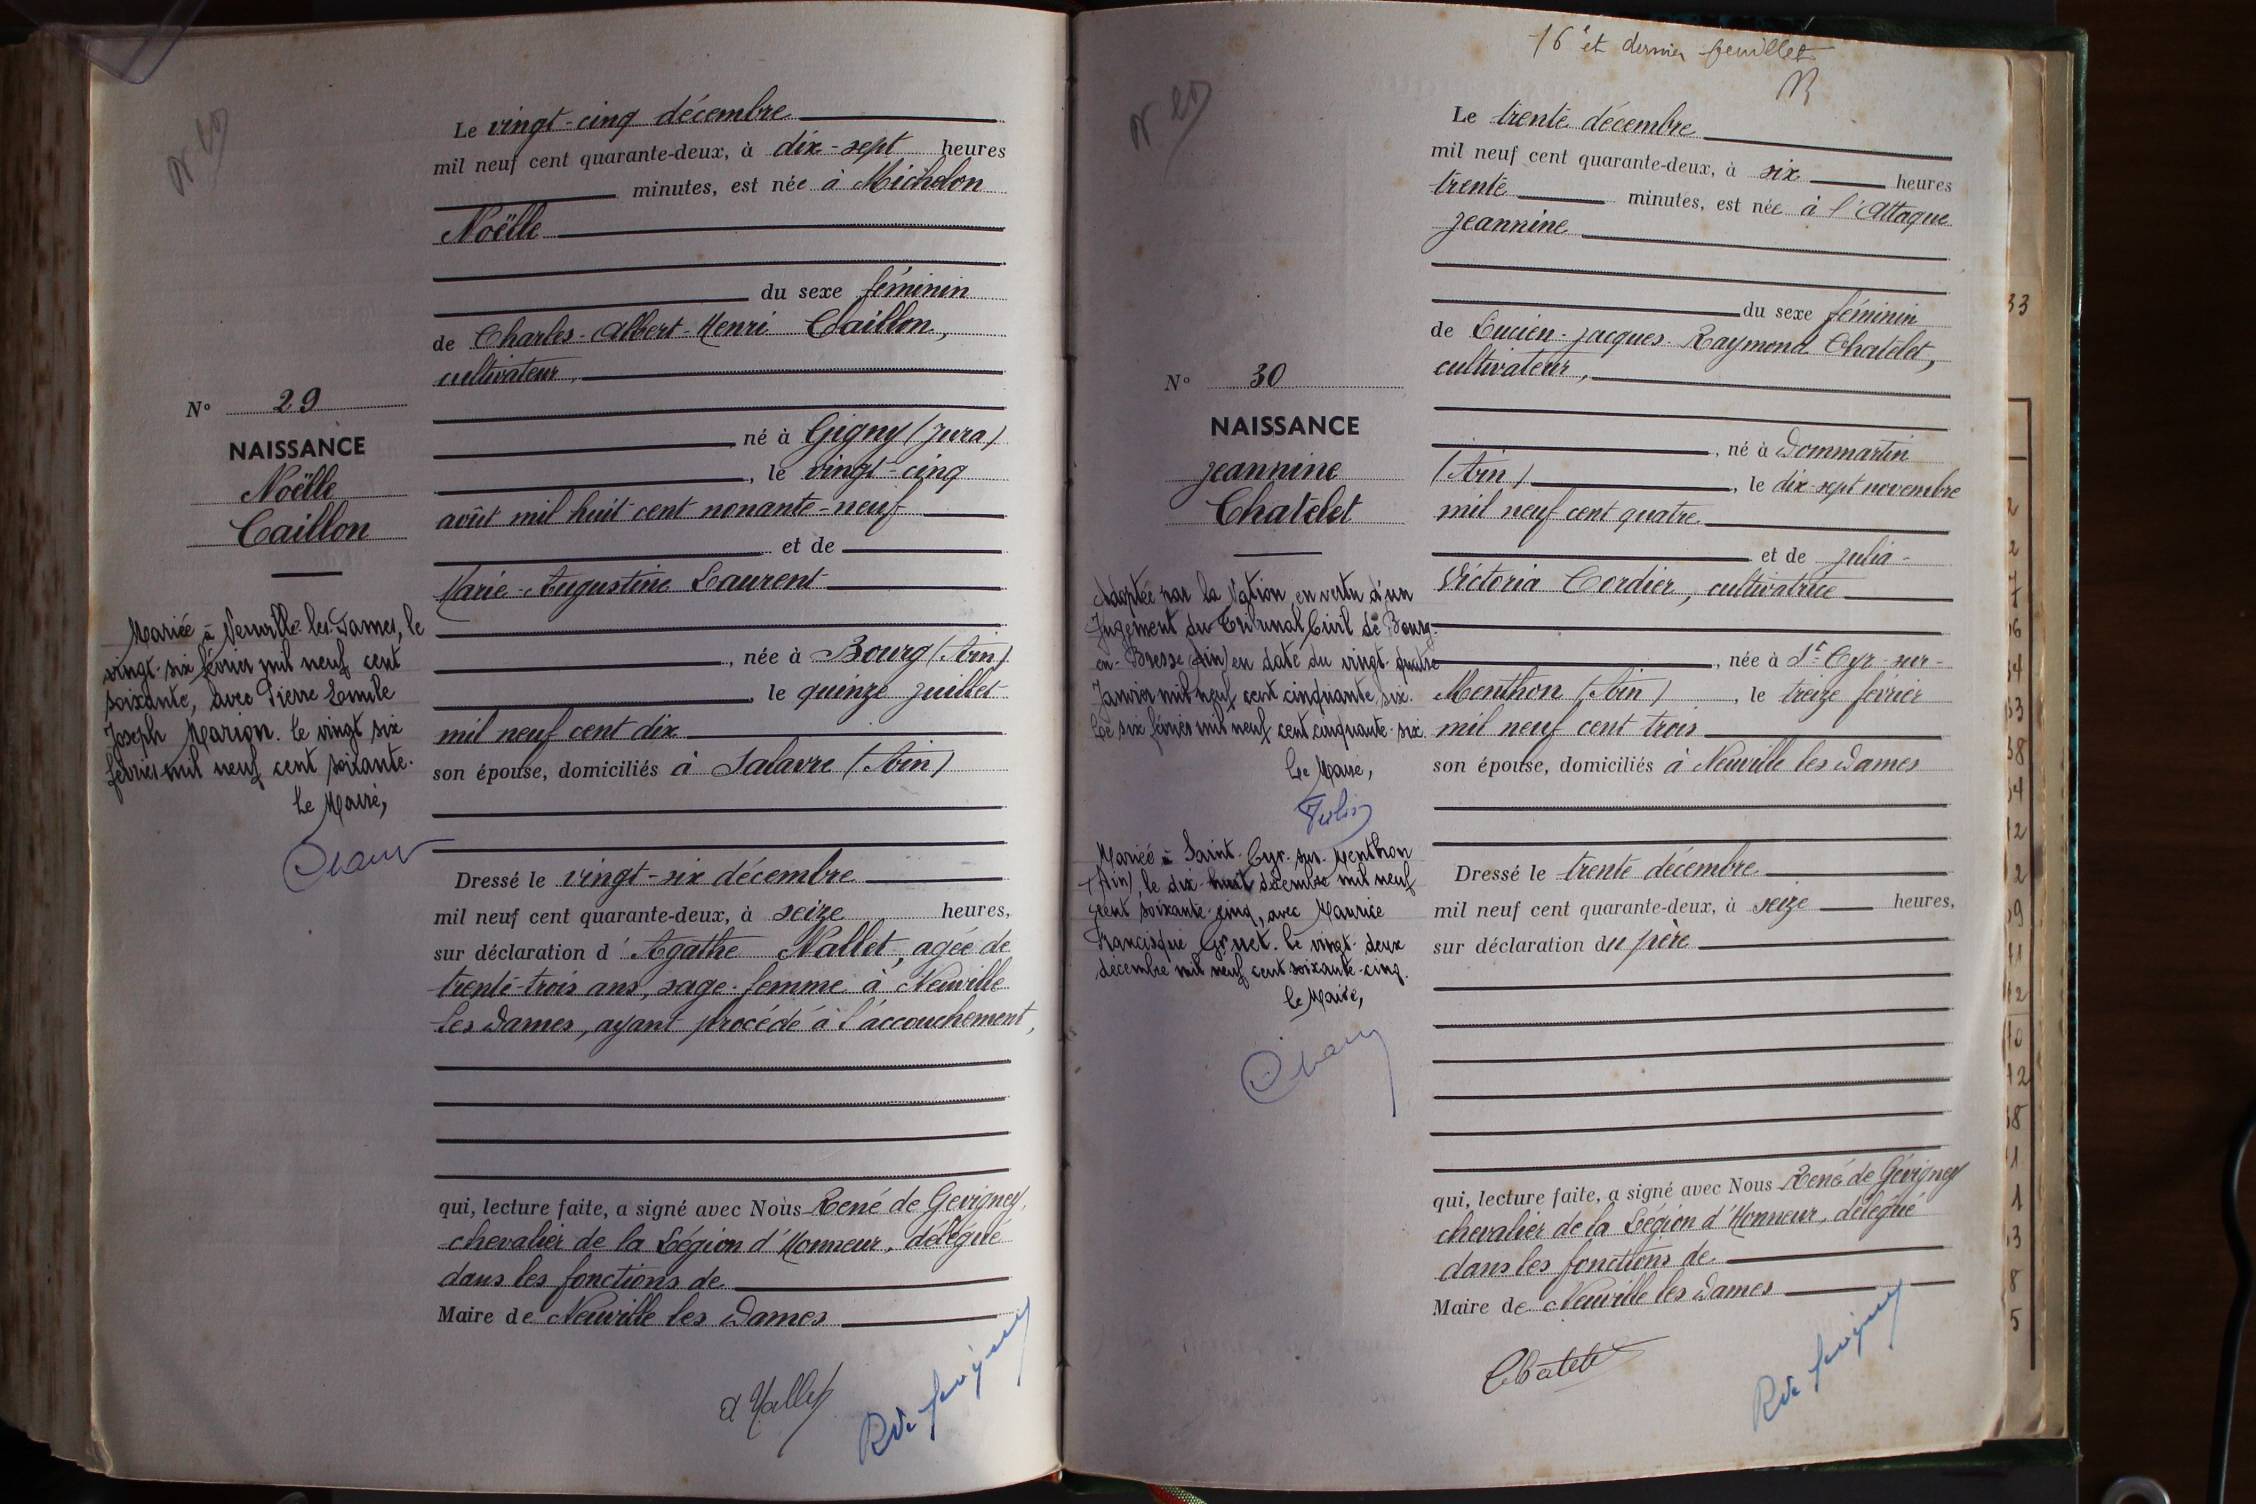 Le vingt-cinq décembre
mil neuf cent quarante-deux, à dix-sept heures
minutes, est née à Michelon
Noëlle
du sexe féminin
de Charles-Albert-Henri Caillon,
cultivateur,
né à Gigny (Jura)
, le vingt-cinq
août mil huit cent nonante-neuf
et de
Marie-Augustine Laurent
, née à Bourg (Ain)
, le quinze juillet
mil neuf cent dix
son épouse, domiciliés à Salavre (Ain)
Dressé le vingt-six décembre
mil neuf cent quarante-deux, à seize heures,
sur déclaration d'Agathe Nallet, agée de
trente-trois ans, sage-femme à Neuville
les Dames, ayant procédé à l'accouchement,
qui, lecture faite, a signé avec Nous René de Gevigney,
chevalier de la Légion d'Honneur, délégué
dans les fonctions de
Maire de Neuville les Dames
a Nallet
N° 29
NAISSANCE
Noëlle
Caillon
Mariée à Neuville-les-Dames, le
vingt-six février mil neuf cent
soixante, avec Pierre Emile
Joseph Marion. Le vingt six
février mil neuf cent soixante.
Le Maire,
16e et dernier feuillet
Le trente décembre
mil neuf cent quarante-deux, à six heures
trente minutes, est née à l'Attaque
Jeannine
du sexe féminin
de Lucien-Jacques-Raymond Chatelet,
cultivateur,
, né à Dommartin
(Ain), le dix-sept novembre
mil neuf cent quatre
et de Julia-
Victoria Cordier, cultivatrice
, née à St-Cyr-sur-
Menthon (Ain), le treize février
mil neuf cent trois
son épouse, domiciliés à Neuville les Dames
Dressé le trente décembre
mil neuf cent quarante-deux, à seize heures,
sur déclaration du père
qui, lecture faite, a signé avec Nous René de Gévigney
chevalier de la Légion d'Honneur, délégué
dans les fonctions de
Maire de Neuville les Dames
Chatelet
N° 30
NAISSANCE
Jeannine
Chatelet
Adoptée par la Nation en vertu d'un
Jugement du Tribunal Civil de Bourg-
en-Bresse (Ain) en date du vingt-quatre
Janvier mil neuf cent cinquante six.
Le six février mil neuf cent cinquante-six.
Le Maire,
Mariée à Saint-Cyr-sur-Menthon
(Ain), le dix-huit décembre mil neuf
cent soixante-cinq, avec Maurice
Francisque Gruet. Le vingt-deux
décembre mil neuf cent soixante-cinq.
Le Maire,
33